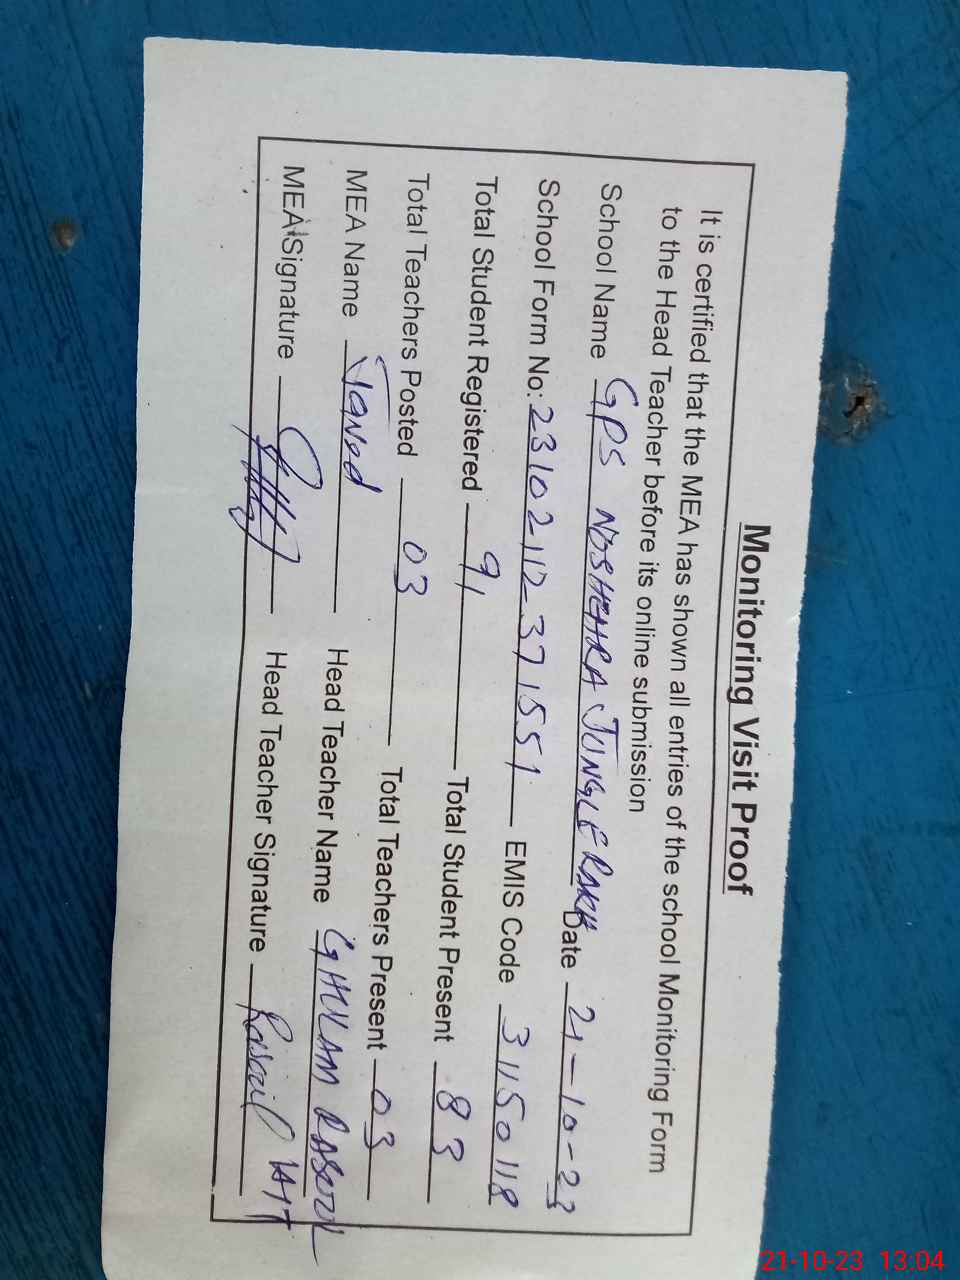 Monitoring Visit Proof
It is certified that the MEA has shown all entries of the school Monitoring Form
to the Head Teacher before its online submission
School Name GPS NOSHEHRA JUNGLE RAKH Date 21-10-23
School Form No: 23102112371551 EMIS Code 31150118
Total Student Registered 91 Total Student Present 83
Total Teachers Posted 03 Total Teachers Present 03
MEA Name Head Teacher Name GHULAM RASOOL
MEA Signature Head Teacher Signature Rasool
21-10-23 13:04